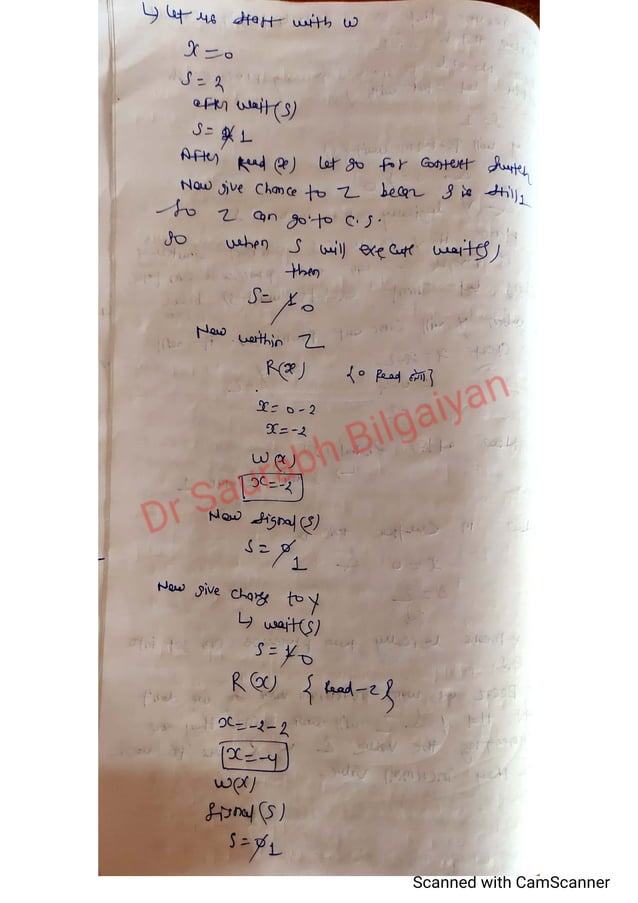 ↳ Let us start with W
X = 0
S = 2
after wait(S)
S = 2 1
After Read(x) let go for context switch
Now give chance to Z becoz S is still 1
So Z can go to C.S.
So when S will execute wait(S)
then
S = 1 0
Now within Z
R(x) {0 Read होगा}
x = 0 - 2
x = -2
W(x)
x = -2
Now signal(S)
S = 0 1
Now give change to Y
↳ wait(S)
S = 1 0
R(x) {Read -2}
x = -2 - 2
x = -4
W(x)
Signal(S)
S = 0 1
Dr Saurabh Bilgaiyan
Scanned with CamScanner